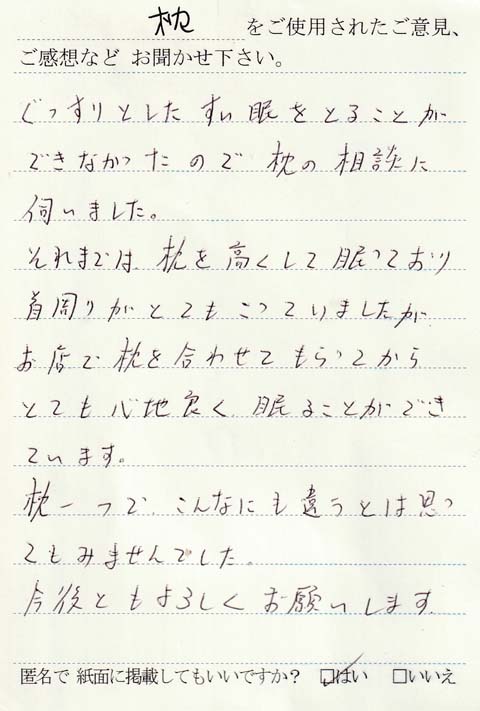 枕 をご使用されたご意見、
ご感想など お聞かせ下さい。
ぐっすりとした すい眠をとることが
できなかったので 枕の相談に
伺いました。
それまでは 枕を高くして眠っており
首周りがとてもこっていましたが
お店で枕を合わせてもらってから
とても心地良く眠ることができ
ています。
枕一つで こんなにも違うとは思っ
てもみませんでした。
今後ともよろしくお願いします
匿名で 紙面に掲載してもいいですか? ☑はい □いいえ